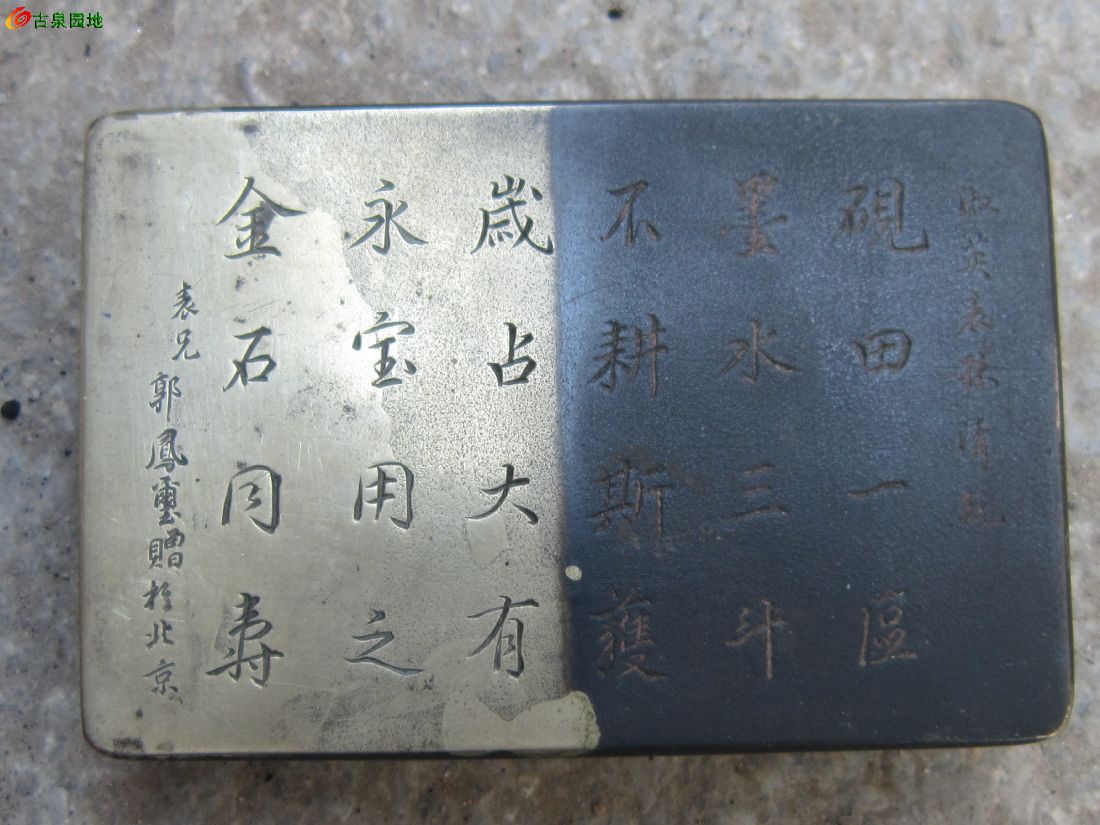 古泉园地
淑英表妹清玩
硯田一區
墨水三斗
不耕斯獲
歲占大有
永宝用之
金石同壽
表兄郭鳳璽贈於北京